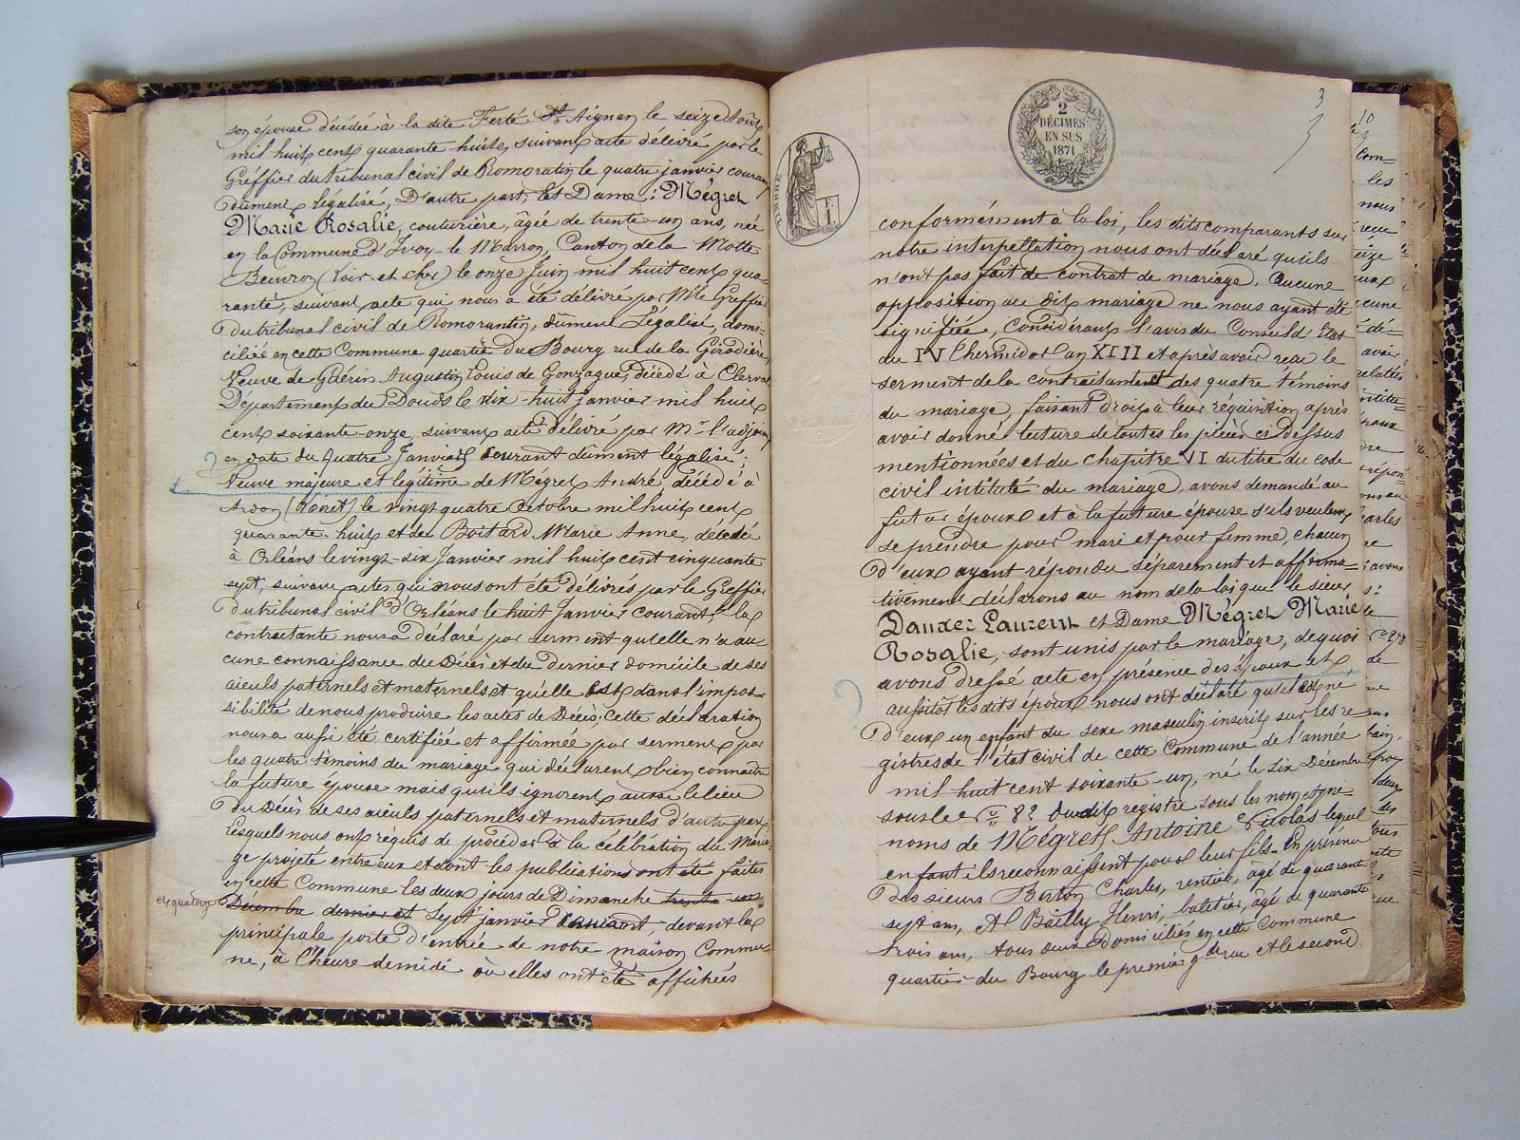 son épouse décédée à la dite Ferté St Aignan le seize Août
mil huit cent quarante-huit, suivant acte délivré par le
Gréffier du tribunal civil de Romorantin le quatre janvier courant
dûment légalisé, D'autre part, Et Dame : Mégret
Marie Rosalie, couturière, âgée de trente-un ans, née
en la Commune d'Ivoy-le Marron, Canton de la Motte
Beuvron (Loir-et-cher) le onze Juin mil huit cent qua-
rante, suivant acte qui nous a été délivré par Mr le Greffier
Du tribunal civil de Romorantin, dûment Légalisé, domi-
ciliée en cette Commune quartier Du Bourg rue de la Girodière
Veuve de Guérin Augustin Louis de Gonzague, décédé à Clerval
Département du Doubs le dix-huit janvier mil huit
cent soixante-onze suivant acte délivré par Mr l'adjoint
en date du quatre Janvier courant dûment légalisé ;
Veuve majeure et légitime de Mégret André, décédé à
Ardon (Loiret) le vingt quatre Octobre mil huit cent
quarante-huit et de Boitard Marie Anne, décédée
à Orléans le vingt-six Janvier mil huit cent cinquante
sept, suivant actes qui nous ont été délivrés par le Greffier
Du tribunal civil D'Orléans le huit Janvier courant, la
contractante nous a déclaré par serment qu'elle n'a au-
cune connaissance du Décès et du dernier domicile de ses
aïeuls paternels et maternels et qu'elle est dans l'impos-
sibilité de nous produire les actes de Décès ; Cette déclaration
nous a aussi été certifiée et affirmée par serment par
les quatre témoins du mariage qui déclarent, bien connaître
la future épouse mais qu'ils ignorent aussi le lieu
Du Décès de ses aïeuls paternels et maternels d'autre part
Lesquels nous ont réquis de procéder à la célébration du Maria-
ge projeté entre eux et dont les publications ont été faites
en cette Commune les deux jours de Dimanche trente-un
et quatorze
Décembre dernier et Sept janvier courant, devant la
principale porte d'entrée de notre maison Commu-
ne, à l'heure de midi où elles ont été affichées
TIMBRE
F.
1.
2
DÉCIMES
EN SUS
1871
3
conformément à la loi, les dits comparants sur
notre interpellation nous ont déclaré qu'ils
n'ont pas fait de contrat de mariage. Aucune
opposition au dit mariage ne nous ayant été
signifiée, Considérant l'avis du Conseil d'Etat
du IV thermidor an XIII et après avoir reçu le
serment de la contractante et des quatre témoins
du mariage, faisant droit à leur réquisition après
avoir donné lecture de toutes les pièces ci-dessus
mentionnées et du chapitre VI du titre du code
civil intitulé du mariage, avons demandé au
futur époux et à la future épouse s'ils veulent
se prendre pour mari et pour femme, chacun
D'eux ayant répondu séparément et affirma-
tivement déclarons au nom de la loi que le sieur
Dauxer Laurent et Dame Mégret Marie
Rosalie, sont unis par le mariage, de quoi
avons dressé acte en présence des époux et
aussitôt les dits époux nous ont déclaré qu'il est né
D'eux un enfant du sexe masculin inscrit sur les re
gistres de l'état civil de cette Commune de l'année
mil huit cent soixante-un, né le six Décembre
sous le No 82 dudit registre sous les nom et pré-
noms de Mégret Antoine Nicolas lequel
enfant ils reconnaissent pour leur fils. En présence
Des sieurs Berton Charles, rentier, âgé de quarante
sept ans, Al Bailly Henri, batelier, âgé de quarante
trois ans, tous deux Domiciliés en cette Commune
quartier du Bourg le premier gde rue et le second